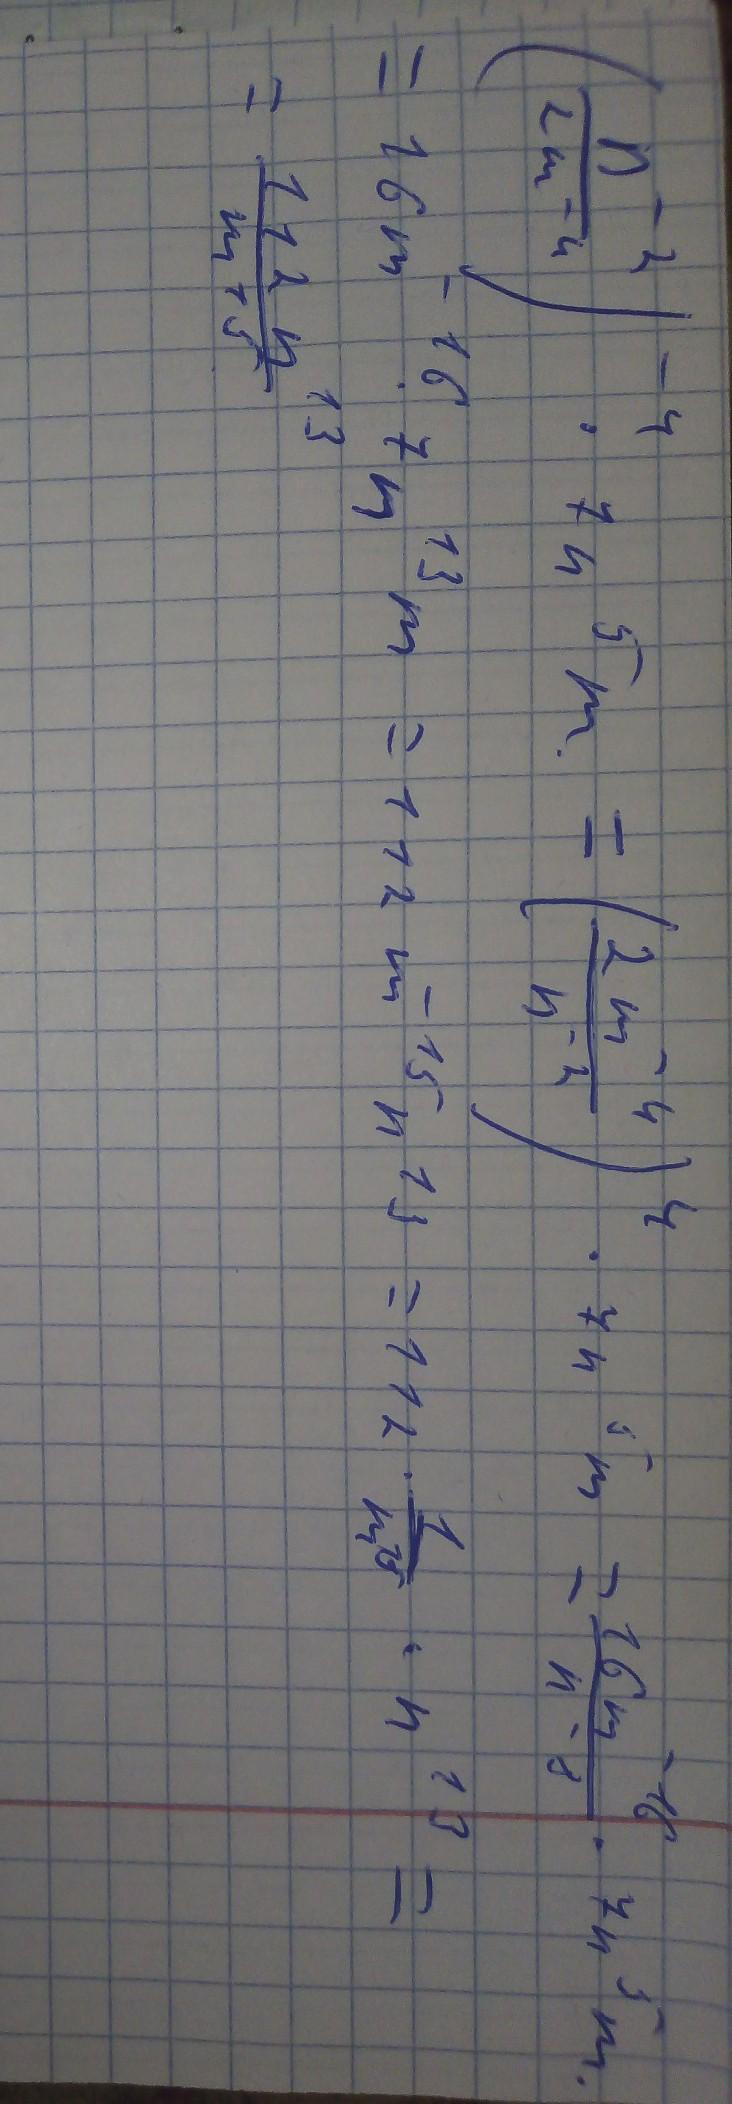 (n⁻²/2m⁻⁴)⁻⁴ · 7n⁵m = (2m⁻⁴/n⁻²)⁴ · 7n⁵m = 16m⁻¹⁶/n⁻⁸ · 7n⁵m
= 16m⁻¹⁶ · 7n¹³m = 112m⁻¹⁵n¹³ = 112 · 1/m¹⁵ · n¹³ =
= 112n¹³/m¹⁵